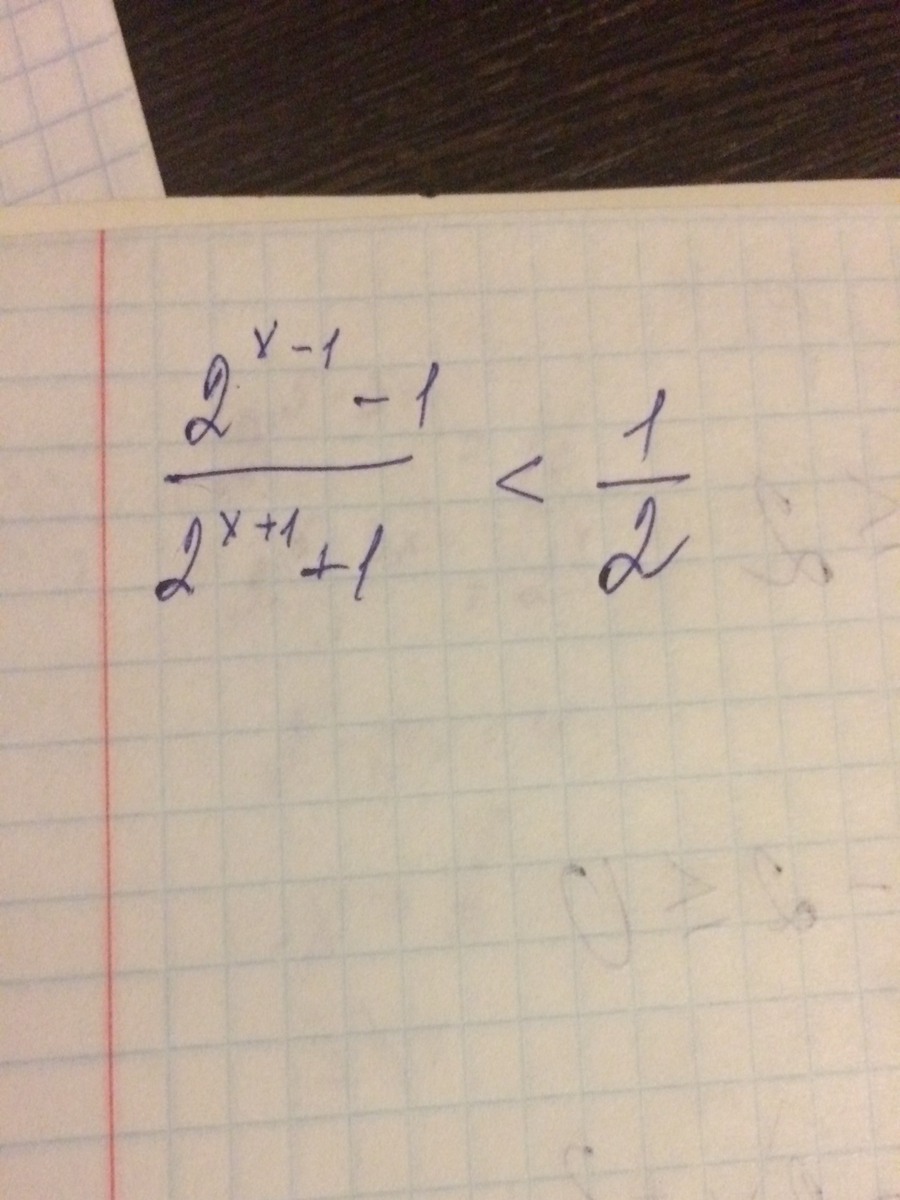 2^{x-1} - 1 / 2^{x+1} + 1 < 1 / 2